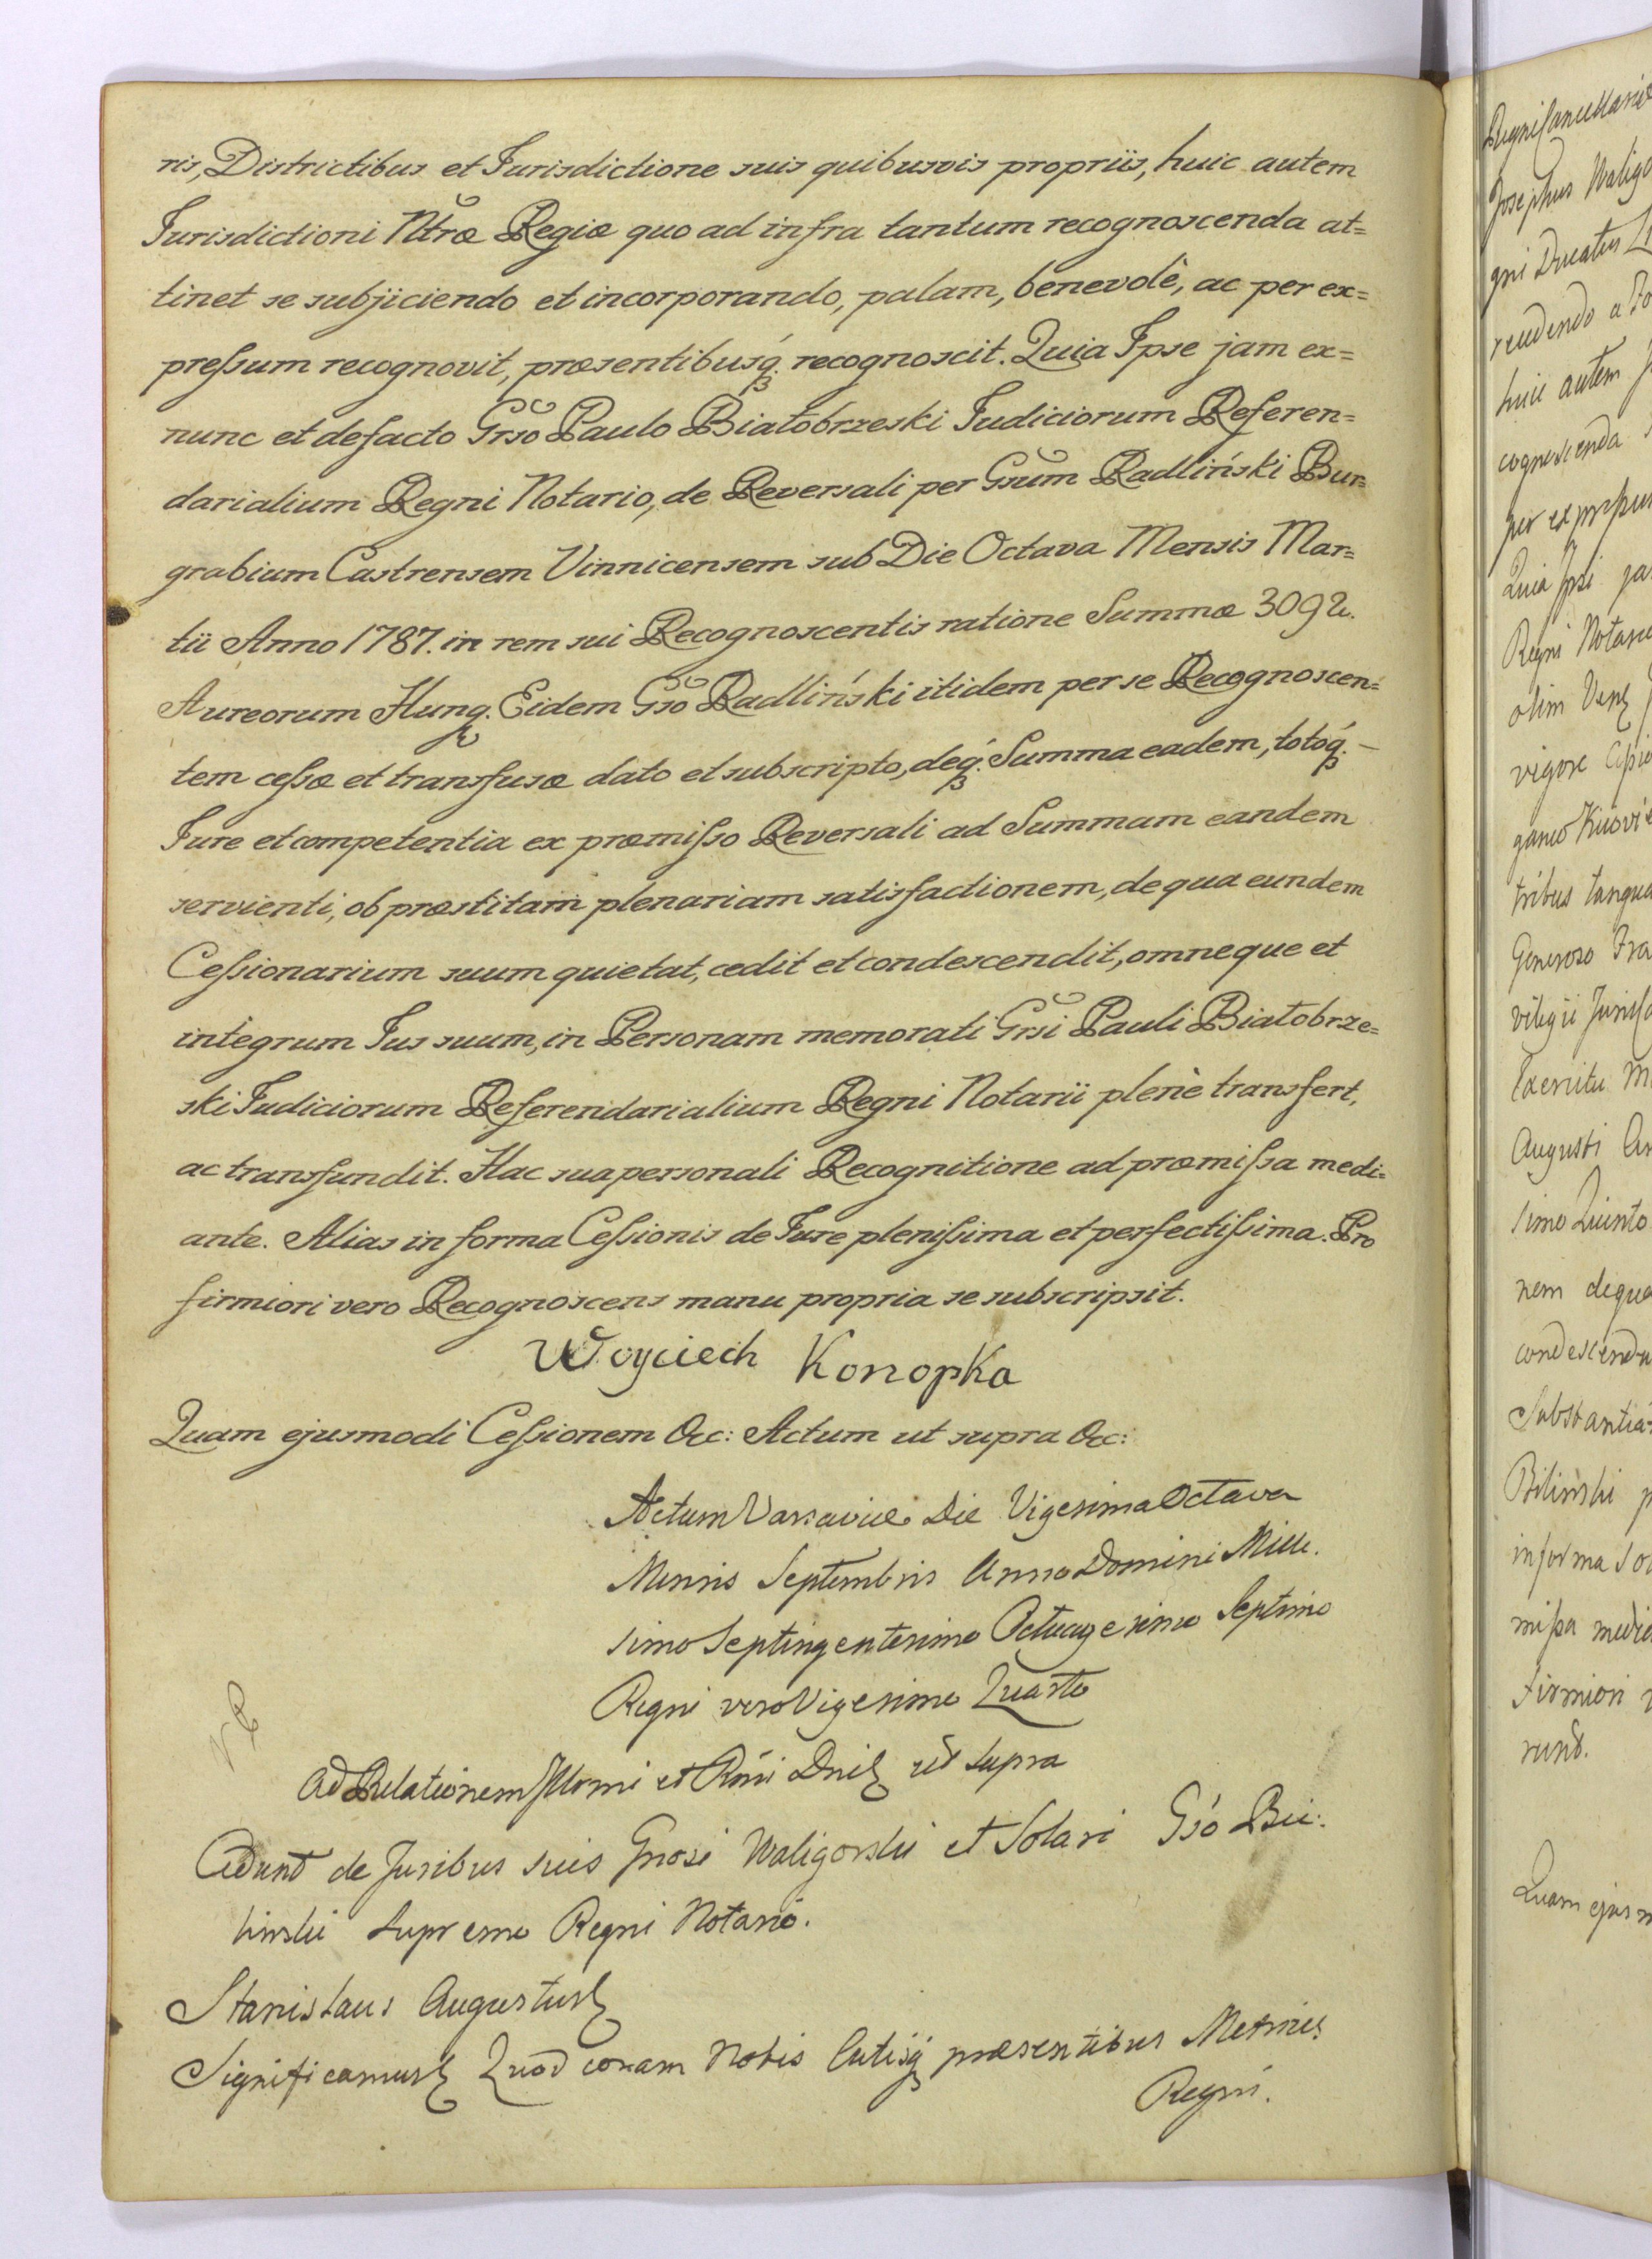 ris, Districtibus et Jurisdictione suis quibusvis propriis, huic autem
Jurisdictioni Ntræ Regiæ quo ad infra tantum recognoscenda at=
tinet se subjiciendo et incorporando, palam, benevolè, ac per ex=
preſsum recognovit, præsentibusq́. recognoscit. Quia Ipse jam ex=
nunc et de facto Grso Paulo Białobrzeski Judiciorum Referen=
darialium Regni Notario, de Reversali per Gsum Radliński Bur=
grabium Castrensem Vinnicensem sub Die Octava Mensis Mar=
tii Anno 1787. in rem sui Recognoscentis ratione Summæ 3092.
Aureorum Hung. Eidem Gso Radliński itidem per se Recognoscen=
tem ceſsæ et transfusæ dato et subscripto, deq́. Summa eadem, totóq́. –
Jure et competentia ex præmiſso Reversali ad Summam eandem
servienti, ob præstitam plenariam satisfactionem, de qua eundem
Ceſsionarium suum quietat, cedit et condescendit, omneque et
integrum Jus suum, in Personam memorati Grsi Pauli Białobrze=
ski Judiciorum Referendarialium Regni Notarii plenè transfert,
ac transfundit. Hac sua personali Recognitione ad præmiſsa medi=
ante. Alias in forma Ceſsionis de Jure pleniſsima et perfectiſsima. Pro
firmiori vero Recognoscens manu propria se subscripsit.
Woyciech Konopka
Quam ejusmodi Ceſsionem &c: Actum ut supra &c:
Actum Varsaviæ Die Vigesima Octava
Mensis Septembris Anno Domini Mille.
simo Septingentesimo Octuagesimo Septimo
Regni vero Vigesimo Quarto
Ad Relationem Illmi et Rmi Dni ut supra
Cedunt de Juribus suis Gnosi Waligorski et Solari Gso Bie:
linski Supremo Regni Notario.
Stanislaus Augustus
Significamus Quod coram Nobis Actisq́ præsentibus Metrices
Regni.
Regni Cancellariæ
Josephus Waligo
gni Ducatus
recedendo a
huic autem
cognoscenda
per expreſsum
Quia Ipsi
Regni Notario
olim
vigore
tribus tanqua
Generoso Fra
vilegii
Exercitu
Augusti
simo Quinto
nem de qua
condescendu
Substantia
Biliński
in forma
miſsa media
firmiori
runt.
Quam ejusm